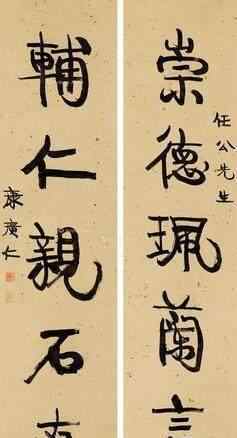 任公先生
崇德珮蘭言
輔仁親石
康廣仁